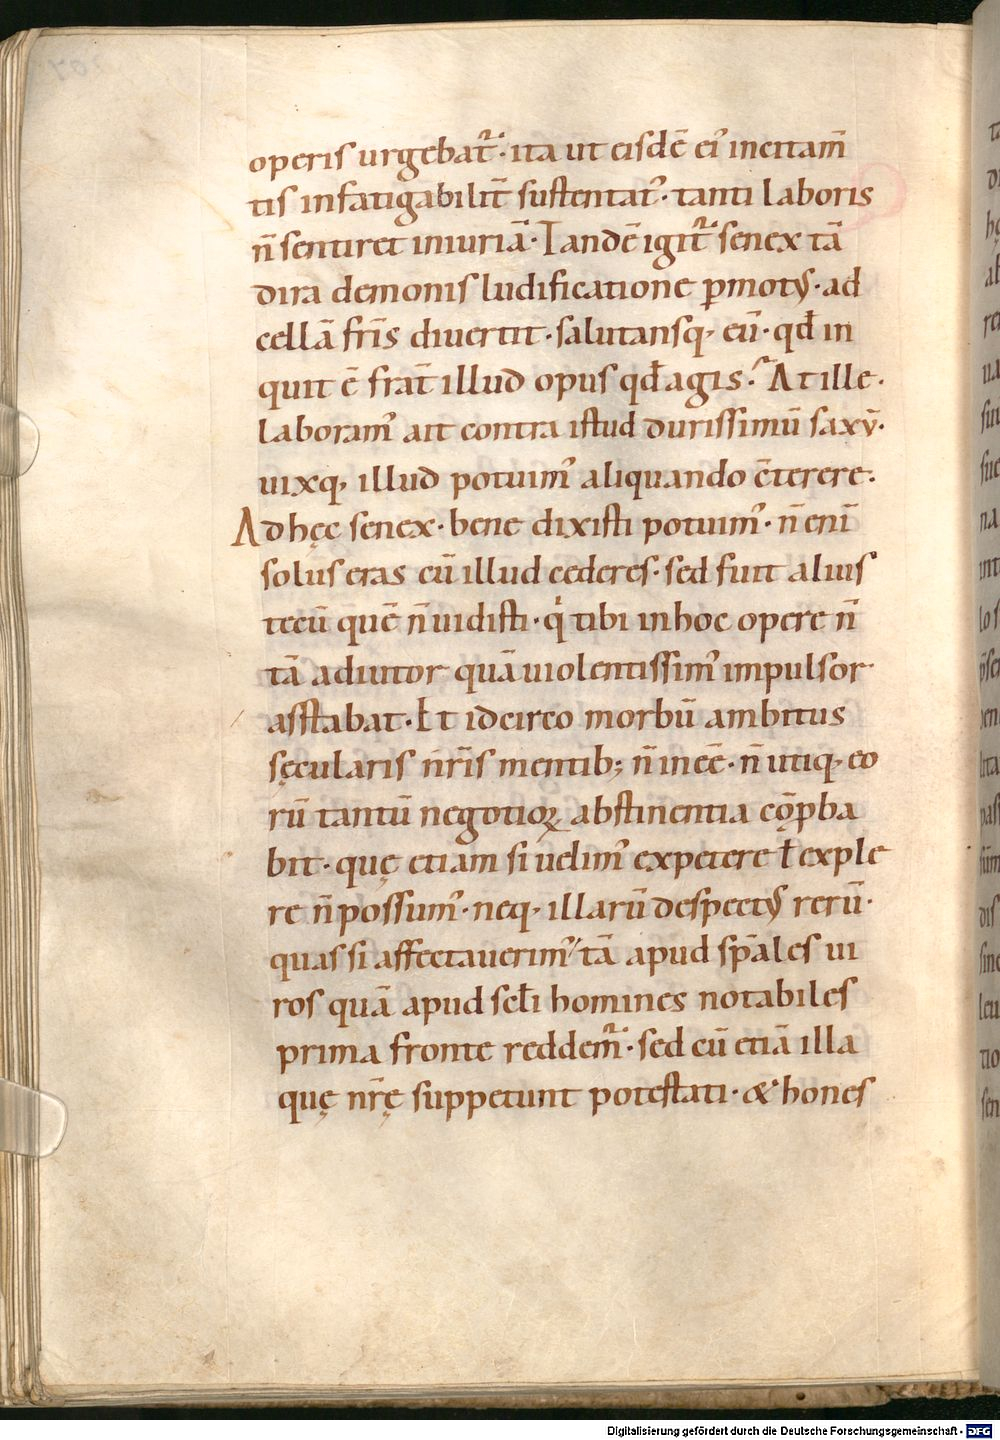 operis urgebat᷑· ita ut eisdē ei᾽ incitam̄
tis infatigabilit̄ sustentat᾽· tanti laboris
n̄ sentiret iniuriā· Tandē igit᷑ senex tā
dira demonis ludificatione ꝑmotꝰ· ad
cellā fr̄is diuertit· salutansq, eū· qđ in
quit ē frat̄ illud opus qđ agis· At ille·
Laboram᾽ ait contra istud durissimū saxū·
uixq, illud potuim᾽ aliquando c̄terere·
Ad hęc senex· bene dixisti potuim᾽· n̄ enī
solus eras cū illud cederes· sed fuit alius
tecū quē n̄ uidisti· qi tibi in hoc opere n̄
tā adiutor quā uiolentissim᾽ impulsor
asstabat· Et idcirco morbū ambitus
sęcularis nr̄is mentib; n̄ inēē· n̄ utiq, eo
rū tantū negotioꝝ abstinentia cōꝓba
bit· quę etiam si uelim᾽ expetere ł exple
re n̄ possum᾽· neq, illarū despectꝰ rerū·
quas si affectauerim᾽ tā apud sp̄ales ui
ros quā apud scłi homines notabiles
prima fronte reddem᷑· sed cū etiā illa
quę nr̄ę suppetunt potestati· & hones
Digitalisierung gefördert durch die Deutsche Forschungsgemeinschaft - DFG